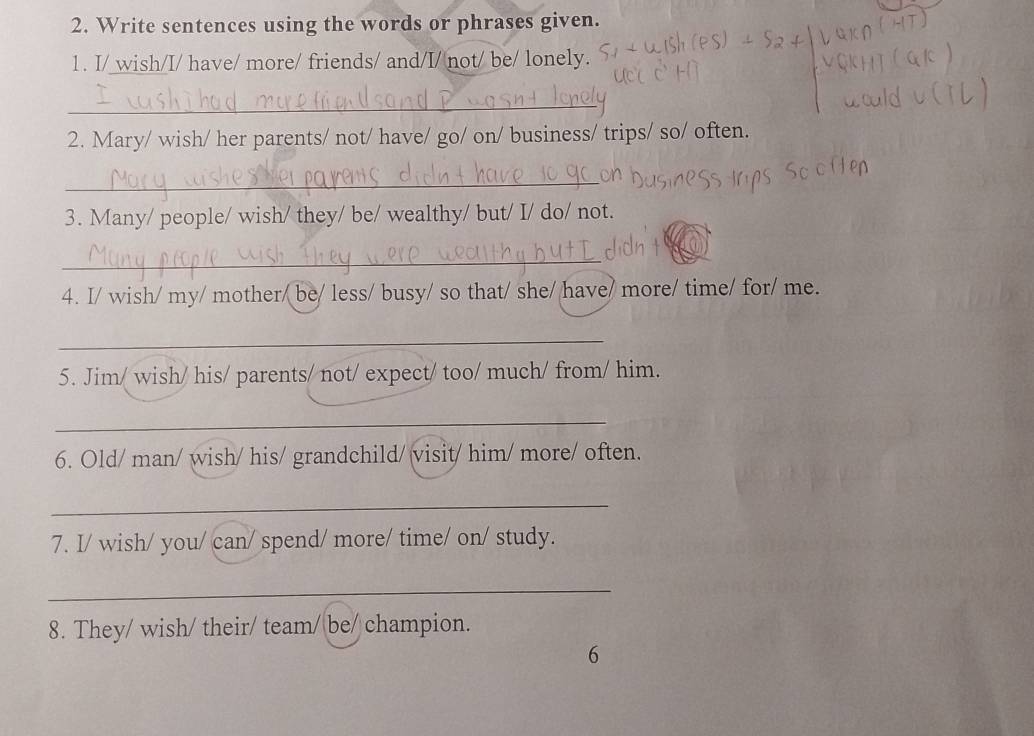 2. Write sentences using the words or phrases given.
1. I/ wish/I/ have/ more/ friends/ and/I/ not/ be/ lonely. S1 + wish (es) + S2 + VQKĐ (HT)
VQKHT (QK)
ước ở HT
would V (TL)
I wish i had more friends and I wasn't lonely
2. Mary/ wish/ her parents/ not/ have/ go/ on/ business/ trips/ so/ often.
Mary wishes her parents didn't have to go on business trips so often
3. Many/ people/ wish/ they/ be/ wealthy/ but/ I/ do/ not.
Many people wish they were wealthy but I didn't
4. I/ wish/ my/ mother/ be/ less/ busy/ so that/ she/ have/ more/ time/ for/ me.
5. Jim/ wish/ his/ parents/ not/ expect/ too/ much/ from/ him.
6. Old/ man/ wish/ his/ grandchild/ visit/ him/ more/ often.
7. I/ wish/ you/ can/ spend/ more/ time/ on/ study.
8. They/ wish/ their/ team/ be/ champion.
6